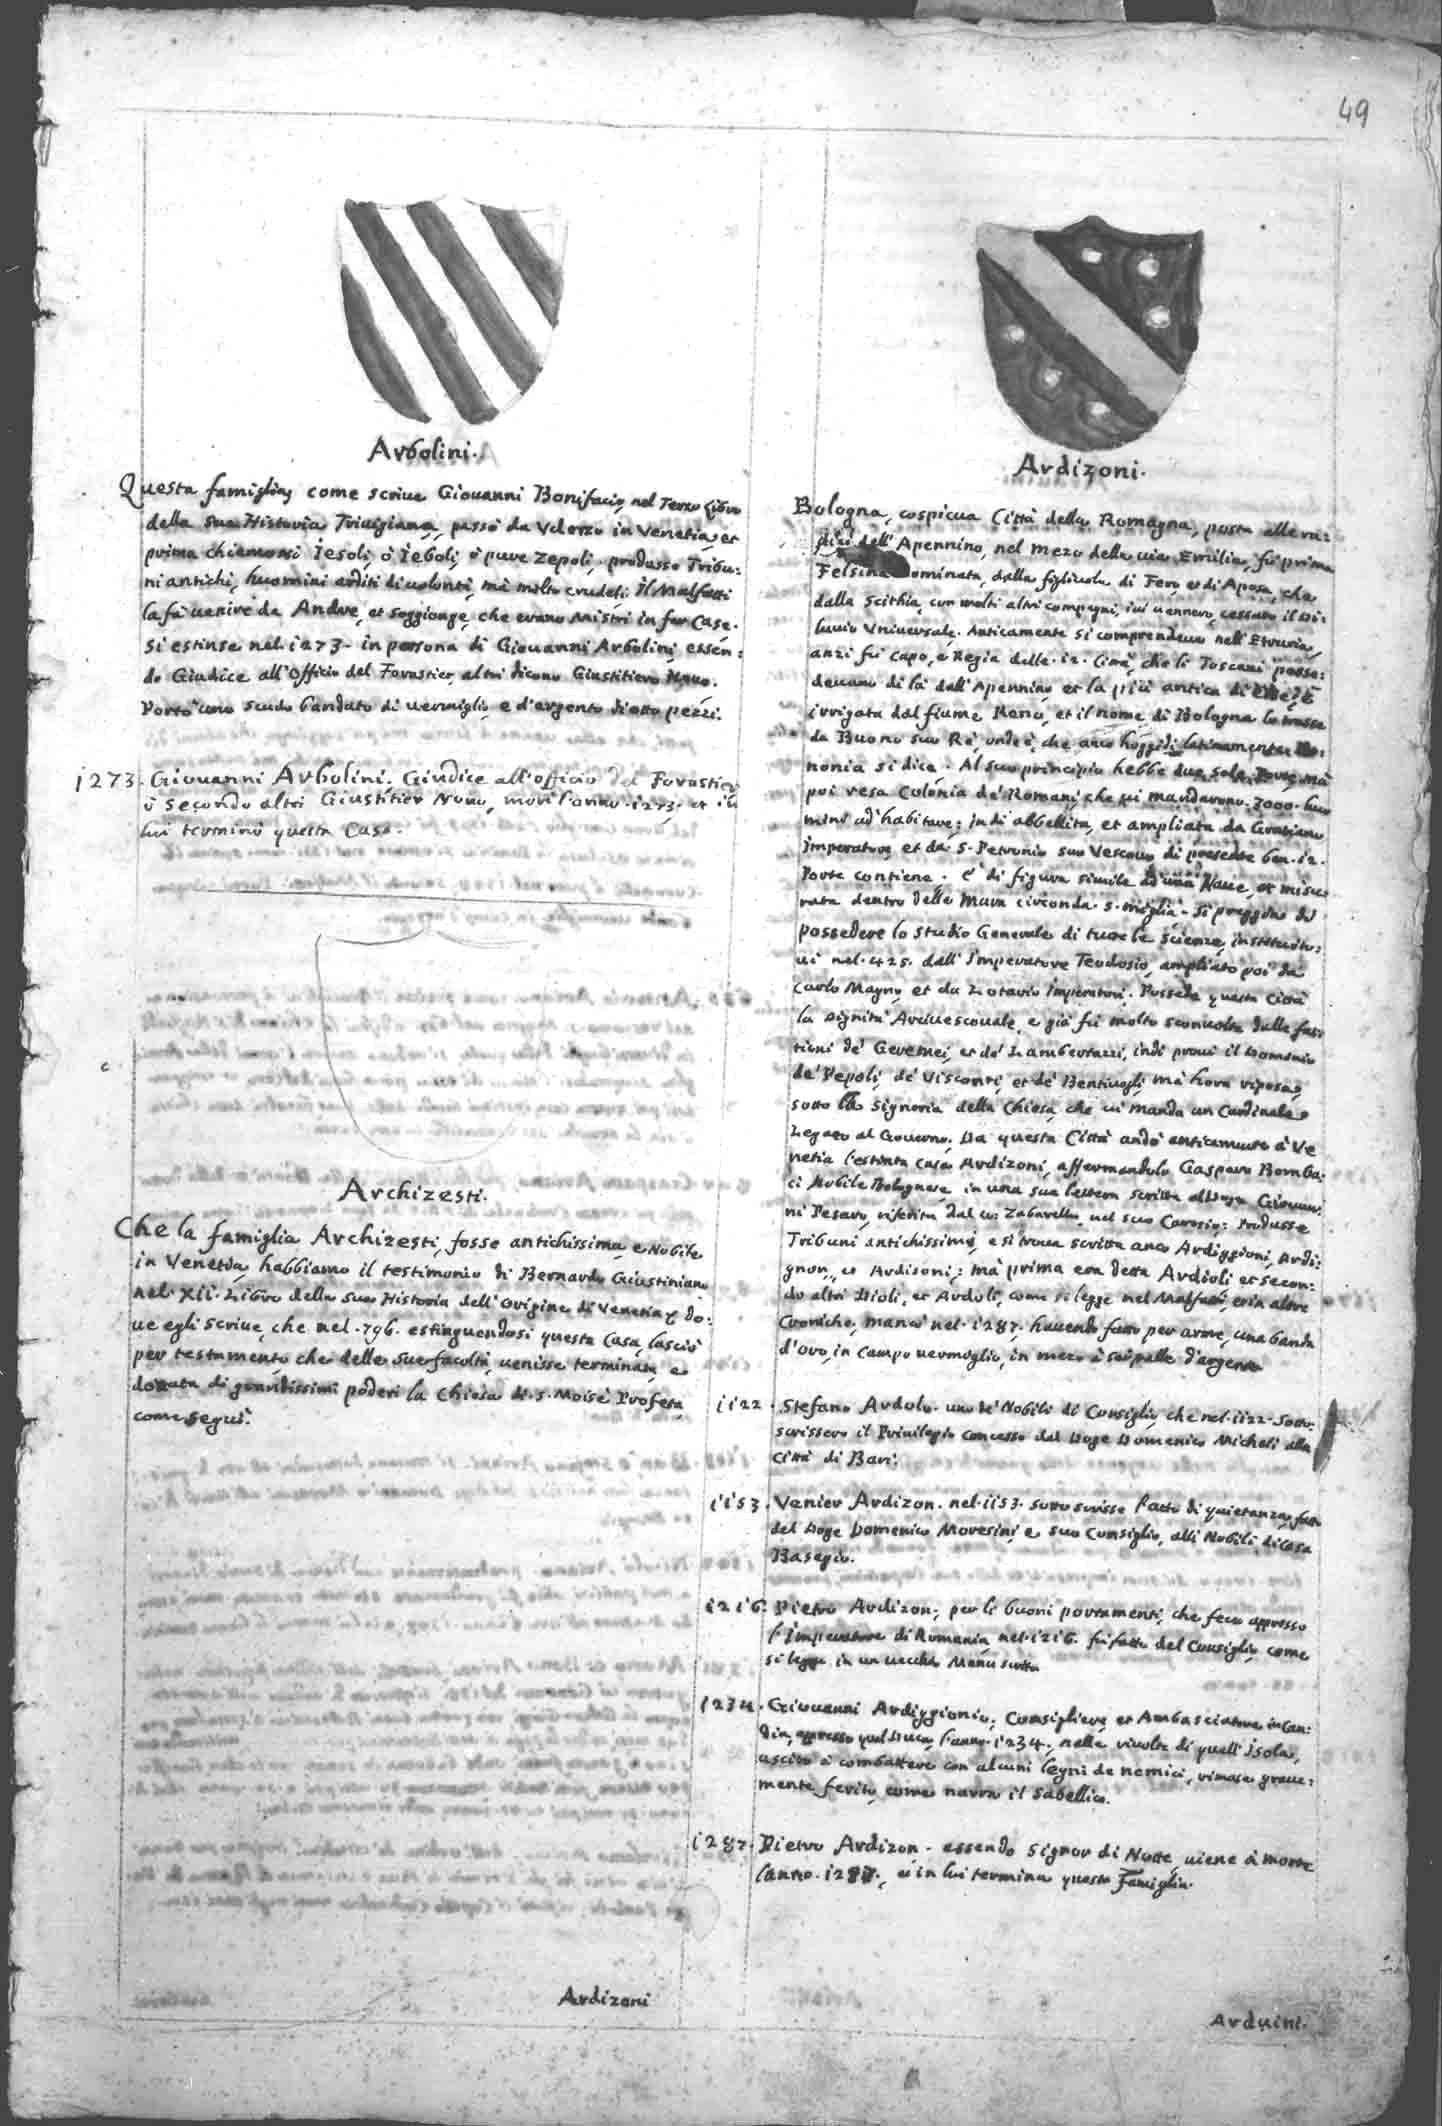 49
Arbolini.
Questa famiglia, come scriue Giouanni Bonifacio, nel Terzo Libro
della sua Historia Triuigiana, passò da Vderzo in Venetia, et
prima chiamossi Iesoli, ò Ieboli, ò pure Zepoli, produsse Tribu:
ni antichi, huomini arditi di uolontà, mà molto crudeli; Il Malfatti
la fà uenire da Andre, et soggionge, che erano Mistri in far Case.
Si estinse nel 1273. in persona di Giouanni Arbolini, essen:
do Giudice all'Officio del Forastier, altri dicono Giustitiero Nouo.
Portò uno scudo bandato di uermiglio, e d'argento di otto pezzi.
1273. Giouanni Arbolini. Giudice all'officio del Forastier,
ò secondo altri Giustitier Nouo, morì l'anno 1273. et in
lui terminò questa Casa.
Archizesti.
Che la famiglia Archizesti, fosse antichissima, e Nobile
in Venetia, habbiamo il testimonio di Bernardo Giustiniano
nel XII. Libro della sua Historia dell'Origine di Venetia, do:
ue egli scriue, che nel 796. estinguendosi questa Casa, lasciò
per testamento, che delle sue facoltà, uenisse terminata, e
dotata di grandissimi poderi la Chiesa di S. Moisè Profeta,
come seguì.
Ardizoni
Ardizoni.
Bologna, cospicua Città della Romagna, posta alle ra:
dici dell'Apennino, nel mezo della uia Emilia, fù prima
Felsina nominata, dalla figliuola di Fero, et di Aposa, che
dalla Scithia, con molti altri compagni, iui uennero, cessato il di:
luuio Vniuersale. Anticamente si comprendeua nell'Etruria,
anzi fù capo, e Regia delle 12. Città, che li Toscani posse:
deuano di là dall'Apennino, et la più antica di
irrigata dal fiume Reno, et il nome di Bologna lo trasse
da Buono suo Rè, onde è, che anco hoggidì latinamente Bo:
nonia si dice. Al suo principio hebbe due sole Porte, mà
poi resa Colonia de' Romani, che ui mandarono 3000. huo
mini ad habitare; indi abbellita, et ampliata da Gratiano
Imperatore, et da S. Petronio suo Vescouo, di presente ben 12.
Porte contiene. È di figura simile ad una Naue, et misu:
rata dentro delle Mura circonda 5. miglia. Si preggia di
possedere lo Studio Generale di tutte le scienze, instituito:
ui nel 425. dall'Imperatore Teodosio, ampliato poi da
Carlo Magno, et da Lotario Imperatori. Possede questa Città
la Dignità Arciuescouale, e già fù molto sconuolta dalle fat:
tioni de' Geremei, et de' Lambertazzi, indi prouò il Dominio
de' Pepoli, de' Visconti, et de' Bentiuogli, mà hora riposa,
sotto la Signoria della Chiesa, che ui manda un Cardinale
Legato al Gouerno. Da questa Città andò anticamente à Ve
netia l'estinta casa Ardizoni, affermandolo Gasparo Bomba:
ci Nobile Bolognese, in una sua lettera scritta al Doge Giouan:
ni Pesaro, riferita dal Co: Zabarella, nel suo Carosio; Produsse
Tribuni antichissimi, e si troua scritta anco Ardiggioni, Ardi:
gnon, et Ardisoni; mà prima era detta Ardioli, et secon:
do altri Dioli, et Ardoli, come si legge nel Malfatti, et in altre
Croniche, mancò nel 1287. hauendo fatto per arme, una banda
d'oro, in campo uermiglio, in mezo à sei palle d'argento.
1122. Stefano Ardolo. uno de' Nobili di Consiglio, che nel 1122. Sotto:
scrissero il Priuilegio concesso dal Doge Domenico Micheli alla
Città di Bari.
1153. Venier Ardizon. nel 1153. sotto scrisse l'atto di quietanza, fatto
del Doge Domenico Moresini, e suo Consiglio, alli Nobili di Casa
Basegio.
1216. Pietro Ardizon, per li buoni portamenti, che fece appresso
l'Imperatore di Romania, nel 1216. fù fatto del Consiglio, come
si legge in un uecchio Manuscritto
1234. Giouanni Ardiggionio, Consigliere, et Ambasciatore in Can:
dia, appresso quel Duca, l'anno 1234, nelle riuolte di quell'Isola,
uscito à combattere con alcuni legni de nemici, rimase graue:
mente ferito, come narra il Sabellico.
1287. Pietro Ardizon. essendo Signor di Notte uiene à morte
l'anno 1287., et in lui termina questa Famiglia.
Arduini.